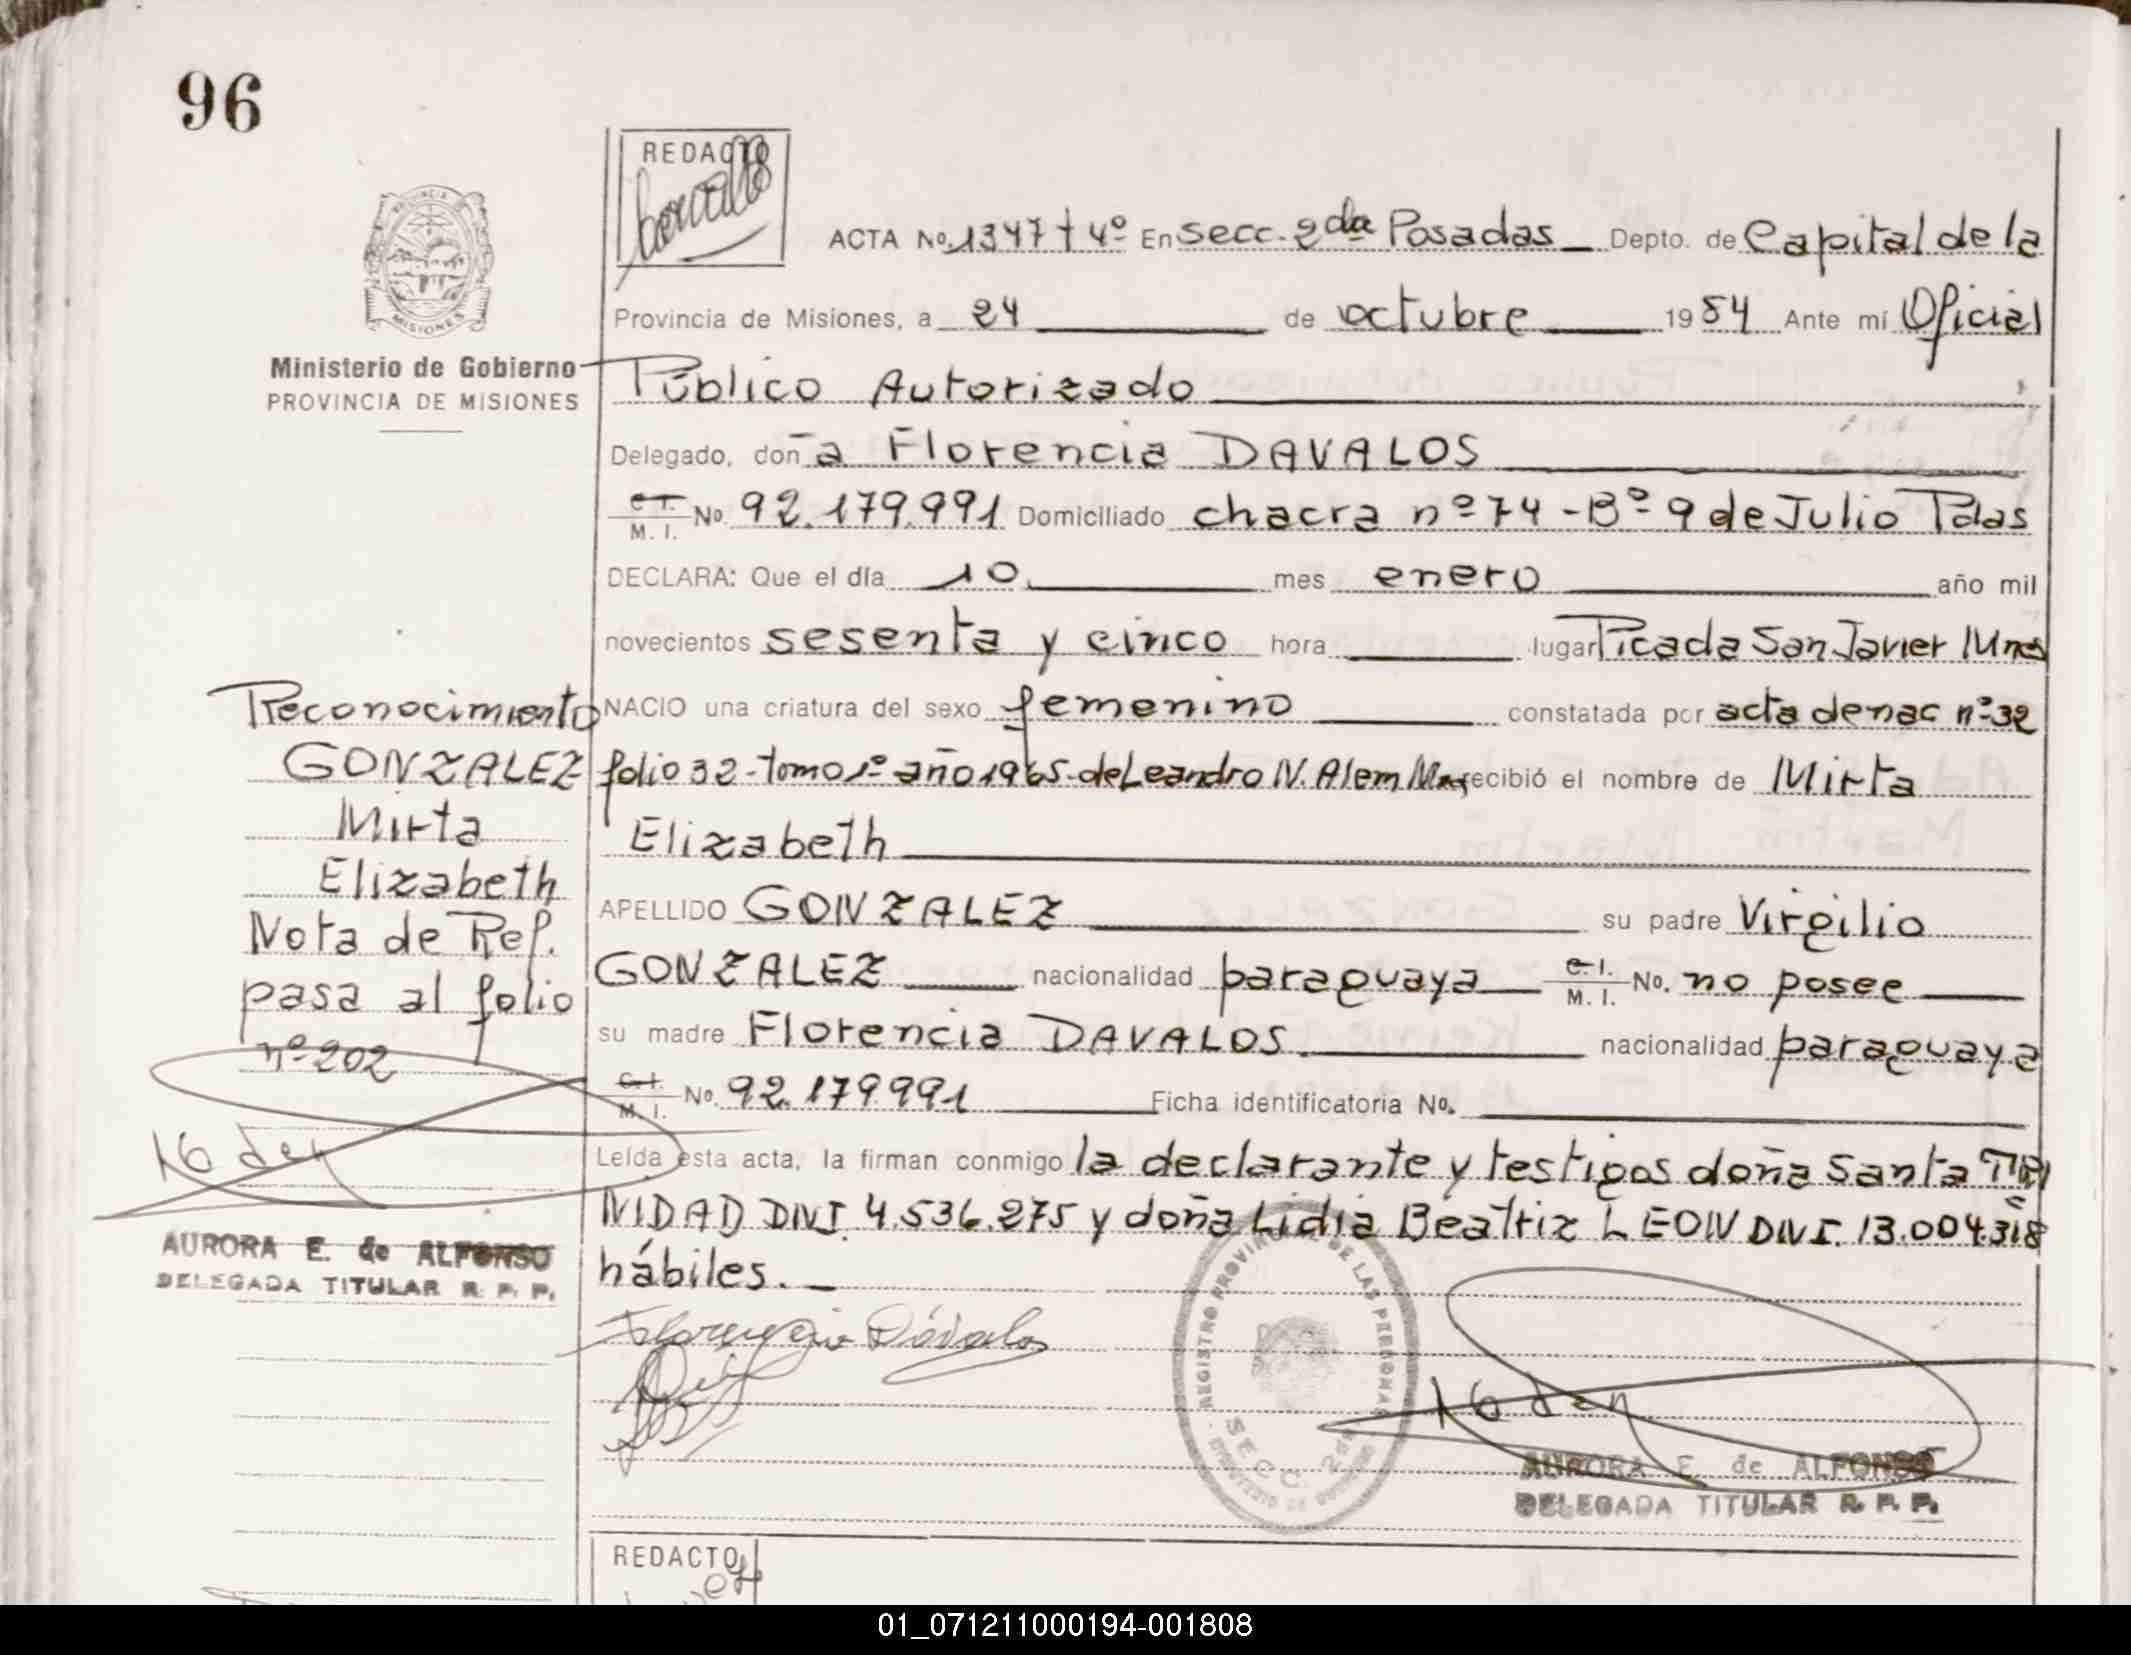 96
REDACTO
ACTA No. 1347 t 4º En secc. 2da Posadas Depto. de Capital de la
PROVINCIA
MISIONES
Provincia de Misiones, a 24 de octubre 1984 Ante mí Oficial
Ministerio de Gobierno
PROVINCIA DE MISIONES
Público Autorizado
Delegado, don a Florencia DAVALOS
C. I. M. I. No. 92.179.991 Domiciliado chacra nº 74 - Bº 9 de Julio Pdas
DECLARA: Que el día 10 mes enero año mil
novecientos sesenta y cinco hora lugar Picada San Javier Mnes
NACIO una criatura del sexo femenino constatada por acta de nac nº 32
folio 32 - tomo 1º año 1965 - de Leandro N. Alem Mnes recibió el nombre de Mirta
Elizabeth
APELLIDO GONZALEZ su padre Virgilio
GONZALEZ nacionalidad paraguaya C. I. M. I. No. no posee
su madre Florencia DAVALOS nacionalidad paraguaya
C. I. M. I. No. 92.179.991 Ficha identificatoria No.
Leída esta acta, la firman conmigo la declarante y testigos doña Santa TRI
NIDAD DNI. 4.536.275 y doña Lidia Beatriz LEON DNI. 13.004.318
hábiles.
Reconocimiento
GONZALEZ
Mirta
Elizabeth
Nota de Ref.
pasa al folio
nº 202
AURORA E. de ALFONSO
DELEGADA TITULAR R. P. P.
Florencia Dávalos
REGISTRO PROVINCIAL DE LAS PERSONAS
SECC. 2da
MINISTERIO DE GOBIERNO
AURORA E. de ALFONSO
DELEGADA TITULAR R. P. P.
REDACTO
01_071211000194-001808